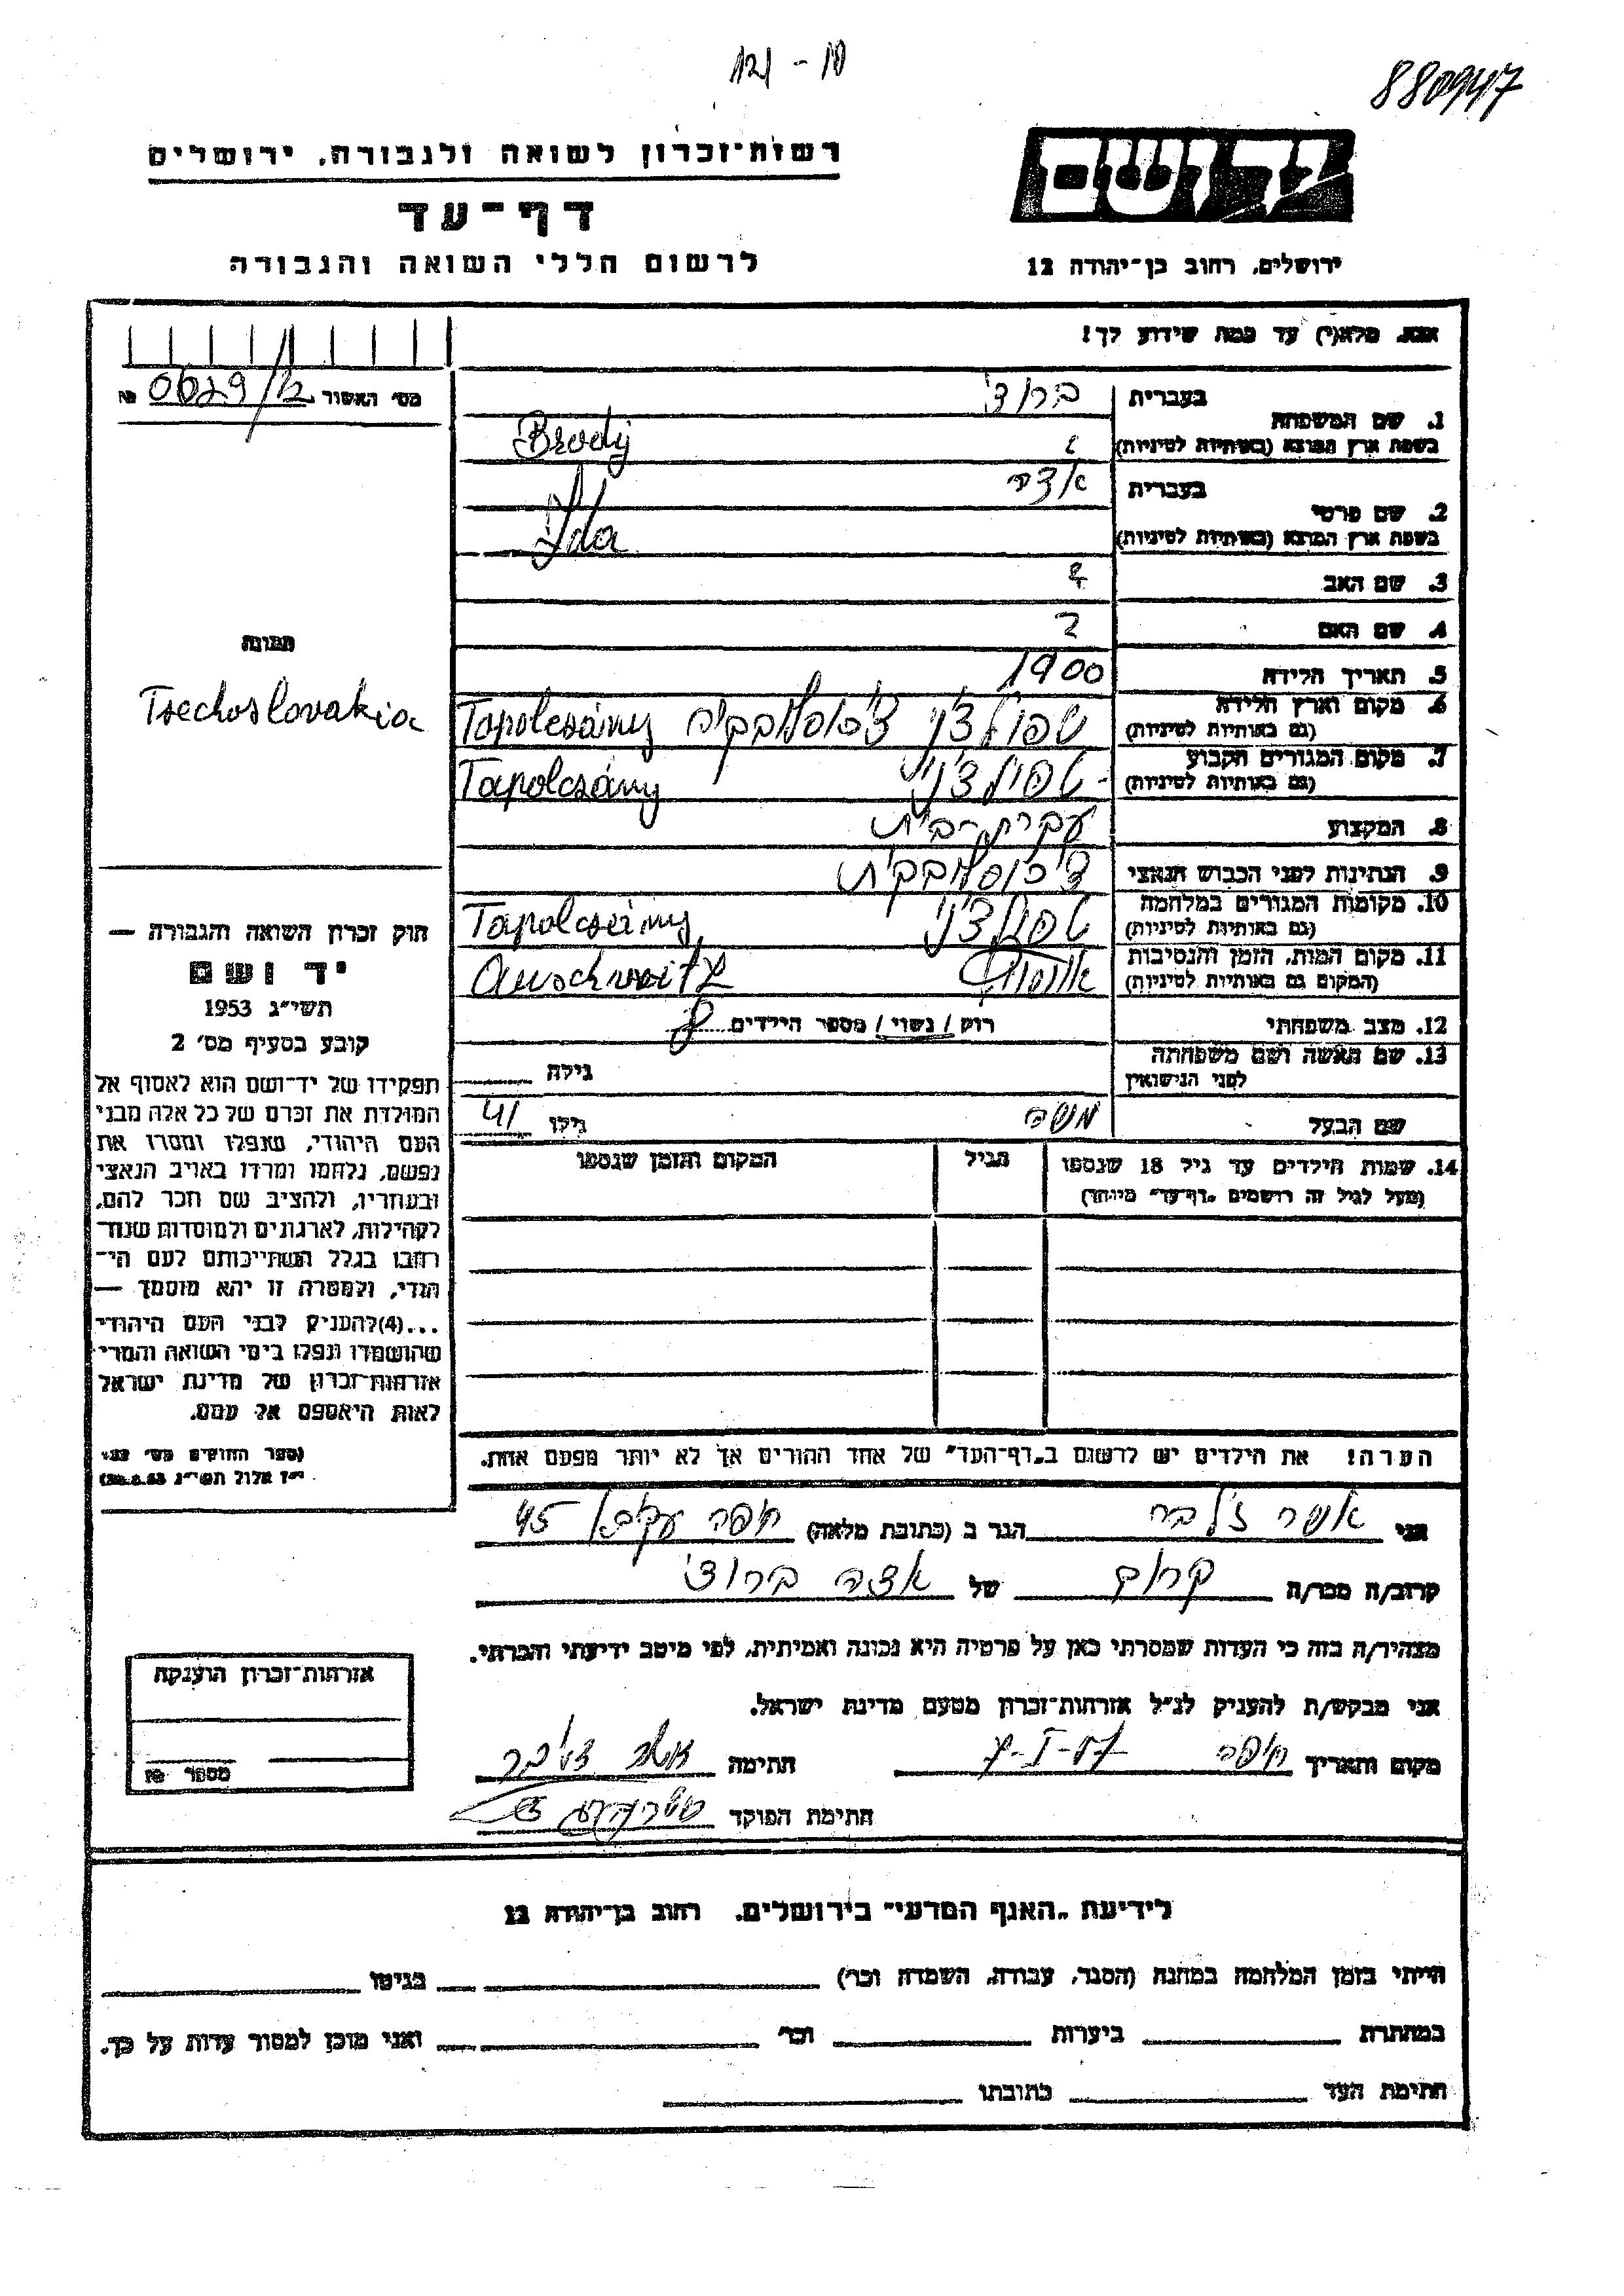 880947
רשות־זכרון לשואה ולגבורה, ירושלים
דף־עד
לרשום חללי השואה והגבורה
יד ושם
ירושלים, רחוב בן־יהודה 12
אנא, מלא(י) עד כמה שידוע לך!
מס׳ האשור № 0629/12
1. שם המשפחה
בעברית ברודי
בשפת ארץ המוצא (באותיות לטיניות) Brody
2. שם פרטי
בעברית אידה
בשפת ארץ המוצא (באותיות לטיניות) Ida
3. שם האב ?
4. שם האם ?
5. תאריך הלידה 1900
6. מקום וארץ הלידה
(גם באותיות לטיניות) צ'כוסלובקיה Tapolcsány
7. מקום המגורים הקבוע
(גם באותיות לטיניות) Tapolcsány
8. המקצוע עקרת-בית
9. הנתינות לפני הכבוש הנאצי צ'כוסלובקית
10. מקומות המגורים במלחמה
(גם באותיות לטיניות) Tapolcsány
11. מקום המות, הזמן והנסיבות
(המקום גם באותיות לטיניות) Auschwitz
12. מצב משפחתי רווק / נשוי / מספר הילדים
13. שם האשה ושם משפחתה
לפני הנישואין
גילה
שם הבעל משה גילו 41
14. שמות הילדים עד גיל 18 שנספו
(מעל לגיל זה רושמים „דף־עד״ מיוחד)
הגיל
המקום והזמן שנספו
תמונה
Tsechoslovakia
חוק זכרון השואה והגבורה —
יד ושם
תשי״ג 1953
קובע בסעיף מס׳ 2
תפקידו של יד־ושם הוא לאסוף אל
המולדת את זכרם של כל אלה מבני
העם היהודי, שנפלו ומסרו את
נפשם, נלחמו ומרדו באויב הנאצי
ובעוזריו, ולהציב שם וזכר להם,
לקהילות, לארגונים ולמוסדות שנח־
רבו בגלל השתייכותם לעם הי־
הודי, ולמטרה זו יהא מוסמך —
...(4) להעניק לבני העם היהודי
שהושמדו ונפלו בימי השואה והמרי
אזרחות־זכרון של מדינת ישראל
לאות היאספם אל עמם.
(ספר החוקים מס׳ 132
י״ז אלול תשי״ג 28.8.53)
הערה! את הילדים יש לרשום ב„דף־העד״ של אחד ההורים אך לא יותר מפעם אחת.
אני אשר זילבר הגר ב (כתובת מלאה) חיפה 45
קרוב/ה מכר/ה קרוב של אידה ברודי
מצהיר/ה בזה כי העדות שמסרתי כאן על פרטיה היא נכונה ואמיתית, לפי מיטב ידיעתי והכרתי.
אני מבקש/ת להעניק לנ״ל אזרחות־זכרון מטעם מדינת ישראל.
מקום ותאריך חיפה חתימה אשר זילבר
חתימת הפוקד
אזרחות־זכרון הוענקה
מספר №
לידיעת „האגף המדעי״ בירושלים, רחוב בן־יהודה 12
הייתי בזמן המלחמה במחנה (הסגר, עבודה, השמדה וכו׳) בגיטו
במחתרת ביערות וכו׳ ואני מוכן למסור עדות על כך.
חתימת העד כתובתו